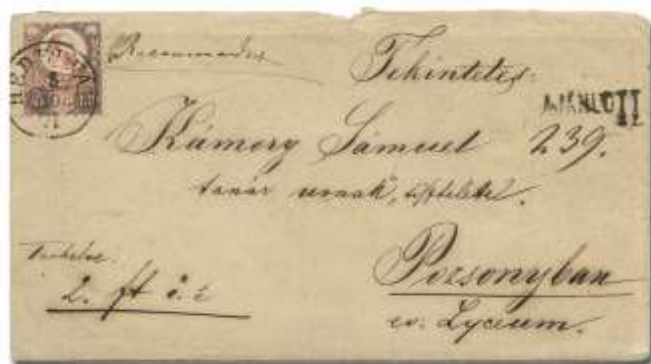 Recommandee
Tekintetes
AJÁNLOTT
Kámory Sámuel 239.
tanár urnak, tisztelettel.
2. ft ö. é
Pozsonyban
ev. Lyceum.